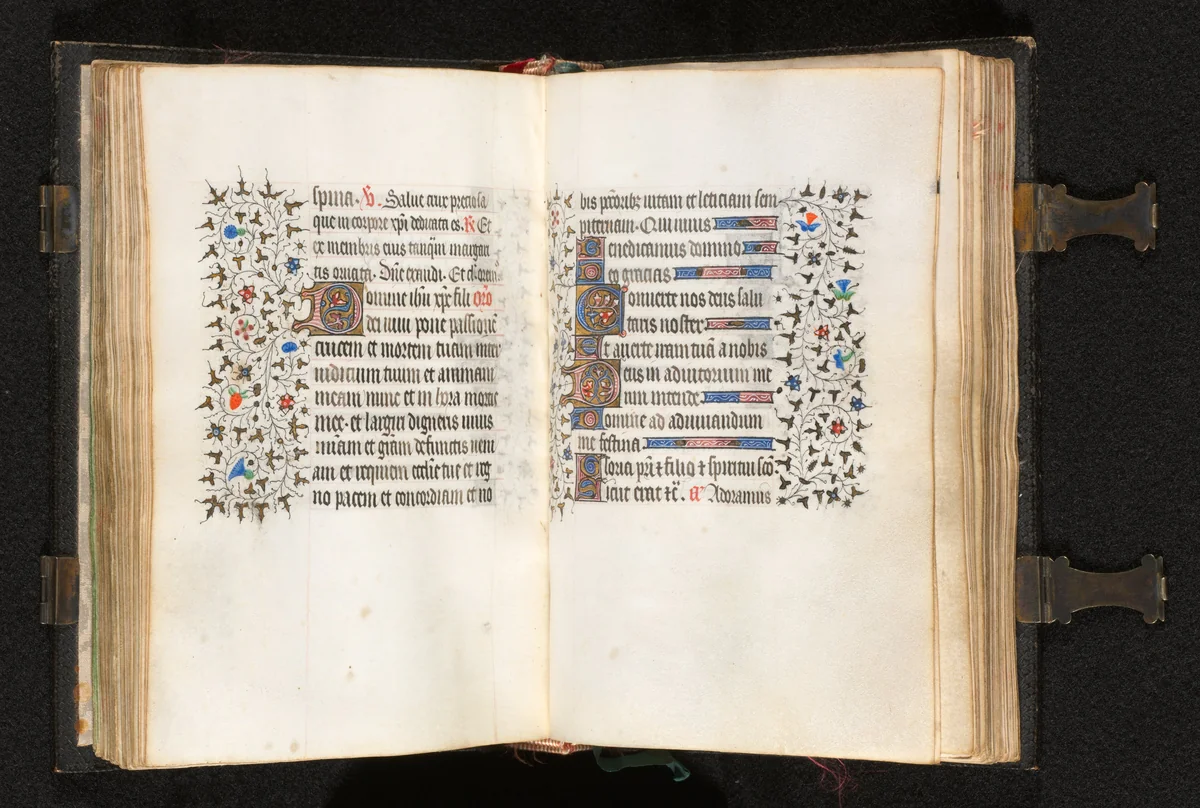 spina. V. Salue crux preciosa
que in corpore xpi dedicata es. R Et
ex membris eius tanqm margari
tis ornata. Dne exaudi. Et clamor
Domine ihu xpe fili Oro
dei uiui pone passione
crucem et mortem tuam inter
iudicium tuum et animam
meam nunc et in hora mortis
mee. et largiri digneris uiuis
miam et gram defunctis ueni
am et requiem ecclie tue et reg
no pacem et concordiam et no
bis pctoribz uitam et leticiam sem
piternam. Qui uiuis
Benedicamus domino
Deo gracias
Conuerte nos deus salu
taris noster
Et auerte iram tua a nobis
Deus in adiutorium me
um intende
Domine ad adiuuandum
me festina
Gloria pri et filio et spiritui sco
Sicut erat etc. an Adoramus